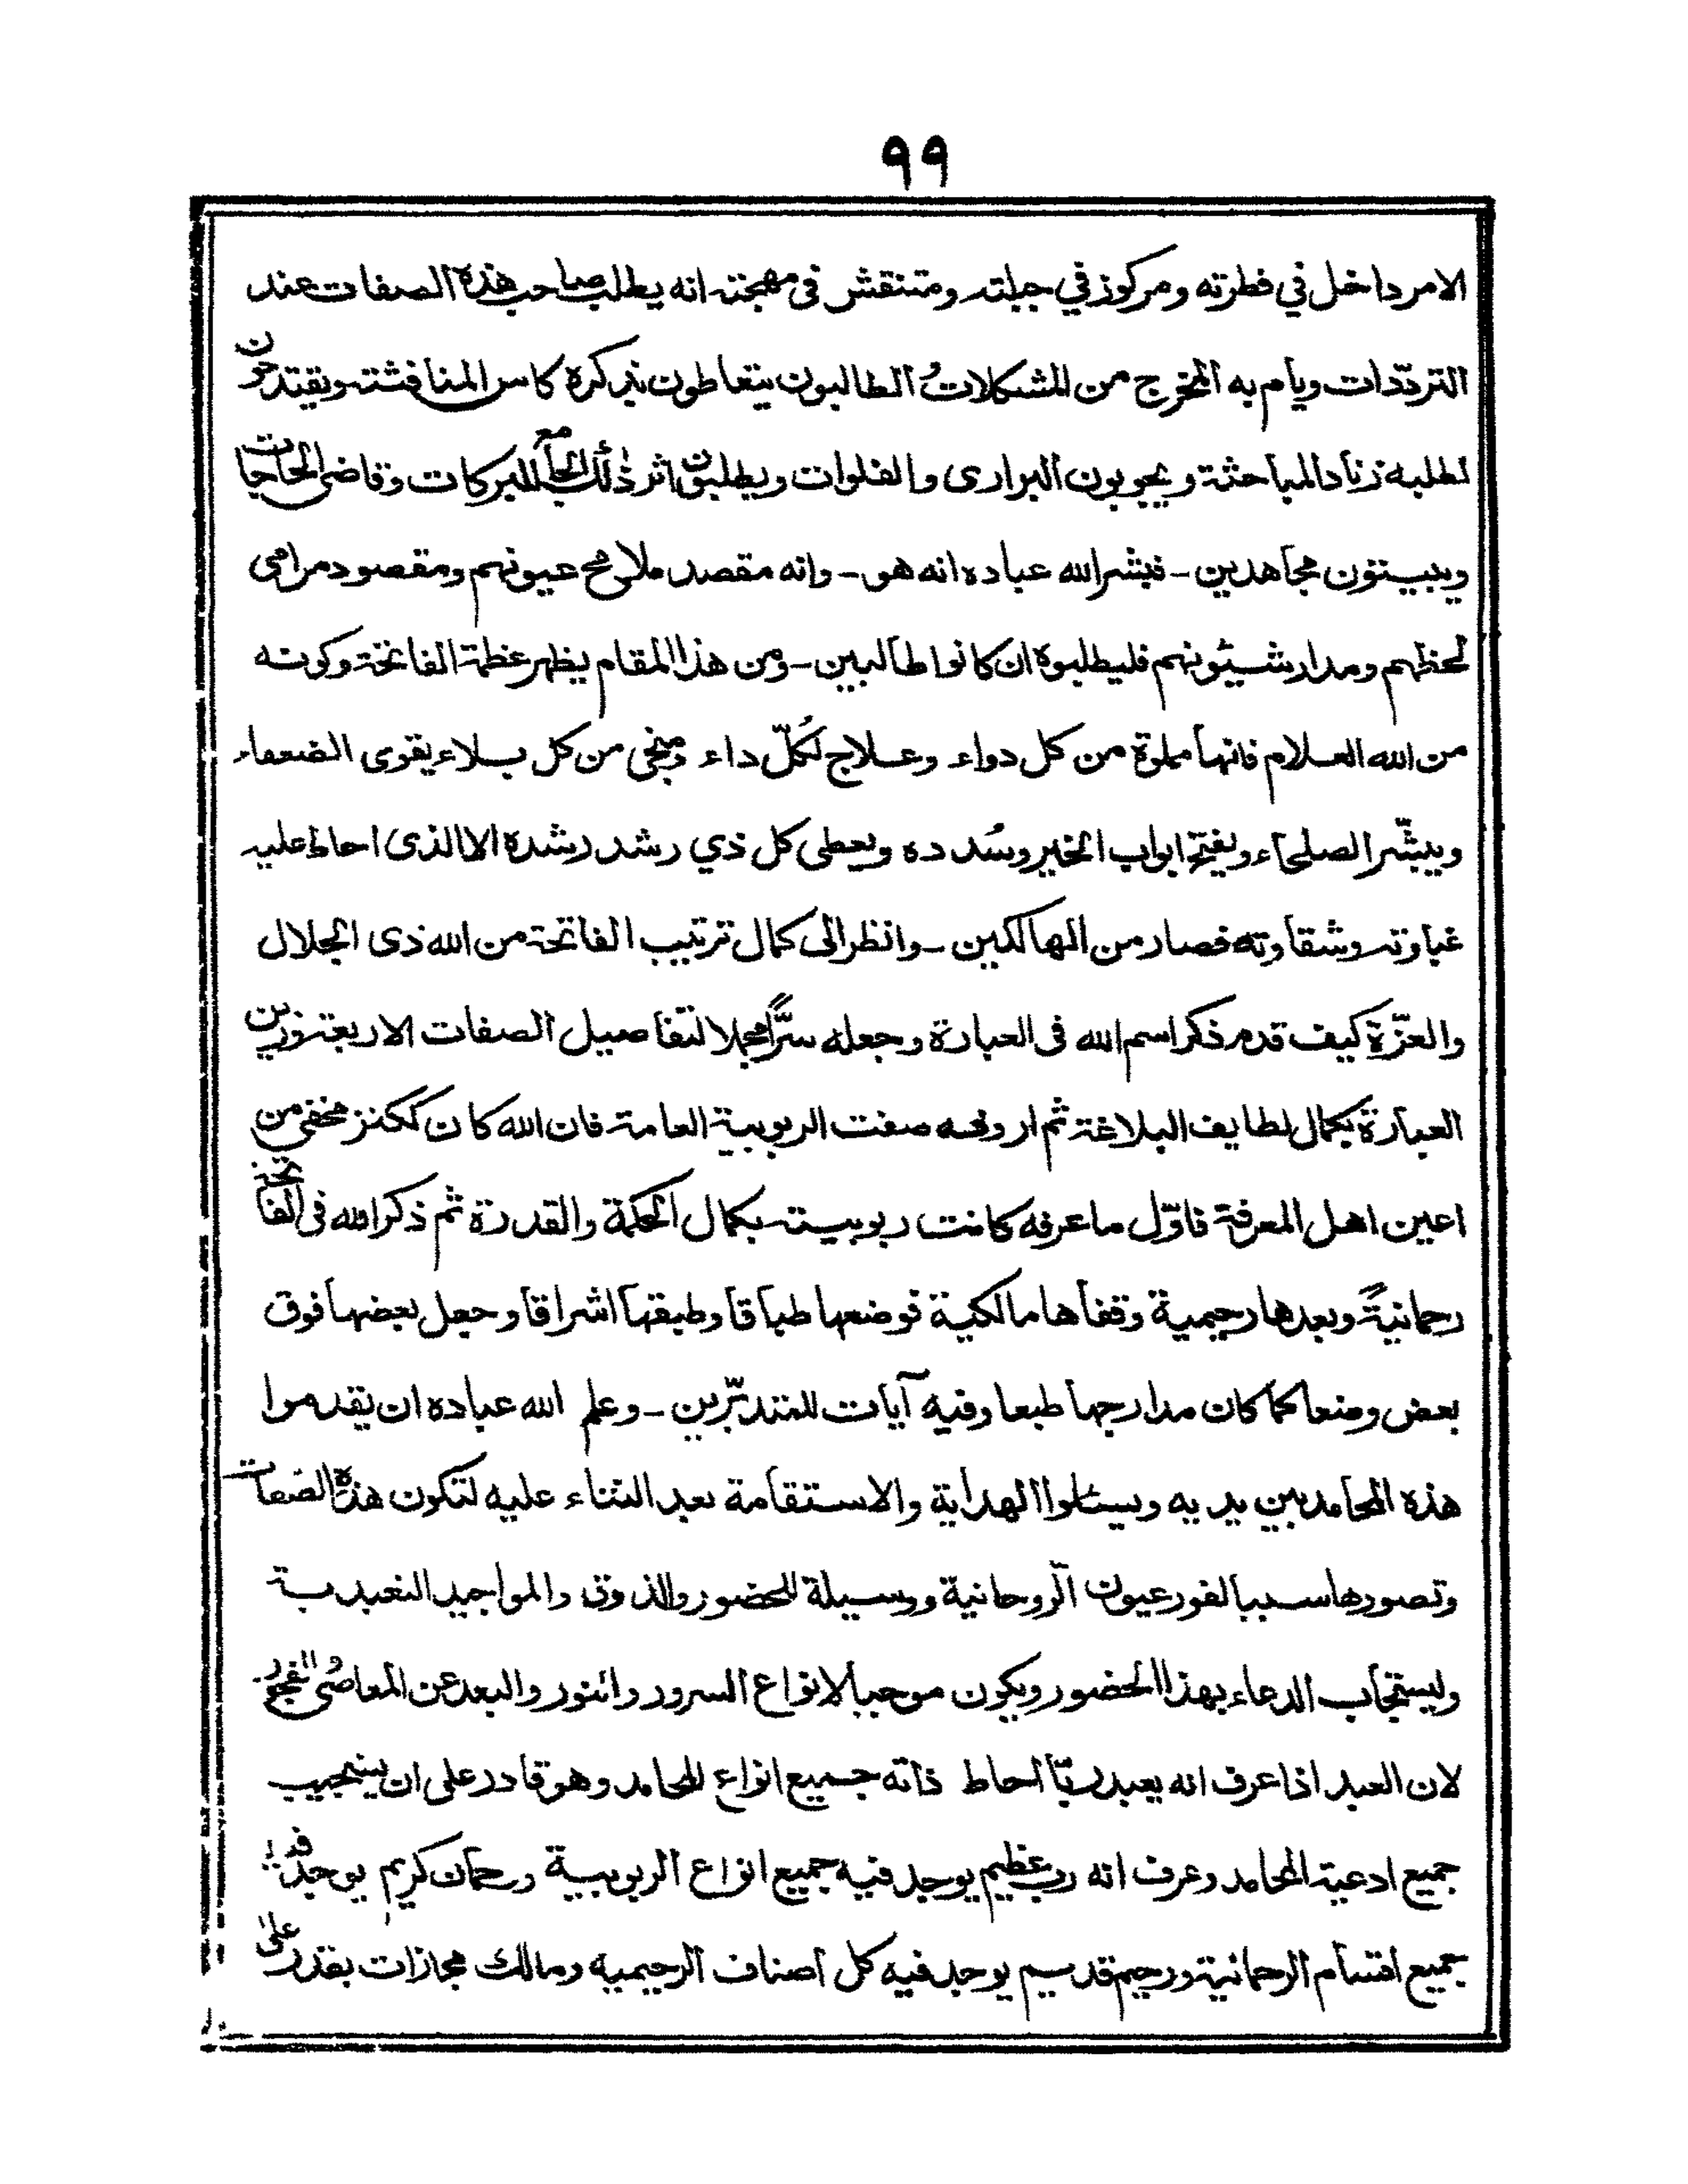 ٩٩
الامر داخل في فطرته ومركوز في جبلته ومتنقش فى مهجته انه يطلب صاحب هذه الصفات عند
التردّدات ويام به المخرج من المشكلات الطالبون يتعاطون بذكره كاس المنافثة ويقتدحون
لطلبه زناد المباحثة ويجوبون البرارى والفلوات ويطلبون اثر ذٰلك الجامع للبركات وقاضى الحاجات
ويبيتون مجاهدين - فبشر الله عباده انه هو - وانه مقصد ملامح عيونهم ومقصود مرامى
لحظهم ومدار شئونهم فليطلبوه ان كانوا طالبين - ومن هذا المقام يظهر عظمة الفاتحة وكونه
من الله العلام فانها مملوة من كل دواء وعلاج لكُلّ داء ومنجى من كل بلاء يقوى الضعفاء
ويبشّر الصلحاء ويفتح ابواب الخير وسُدده ويعطى كل ذي رشد رشده الا الذى احاط عليه
غباوته وشقاوته فصار من الهالكين - وانظر الى كمال ترتيب الفاتحة من الله ذى الجلال
والعزّة كيف قدم ذكر اسم الله فى العبارة وجعله سرًّا مجملا لتفاصيل الصفات الاربعة وزين
العبارة بكمال لطايف البلاغة ثم اردفه صفت الربوبية العامة فان الله كان ككنز مخفى من
اعين اهل المعرفة فاوّل ما عرفه كانت ربوبيته بكمال الحكمة والقدرة ثم ذكر الله فى الفاتحة
رحمانيةً وبعدها رحيمية وقفاها مالكية فوضعها طباقا وطبقها اشراقا وجعل بعضها فوق
بعض وضعا كما كان مدارجها طبعا وفيه آيات للمتدبّرين - وعلم الله عباده ان يقدموا
هذه المحامد بين يديه ويسئلوا الهداية والاستقامة بعد الثناء عليه لتكون هذه الصفات
وتصورها سببا لفور عيون الروحانية ووسيلة للحضور والذوق والمواجيد التعبدية
وليستجاب الدعاء بهذا الحضور ويكون موجبا لانواع السرور والنور والبعد عن المعاصى والفجور
لان العبد اذا عرف انه يعبد ربّا احاط ذاته جميع انواع المحامد وهو قادر على ان يستجيب
جميع ادعية المحامد وعرف انه رب عظيم يوجد فيه جميع انواع الربوبية ورحمان كريم يوجد فيه
جميع اقسام الرحمانية ورحيم قديم يوجد فيه كل اصناف الرحيمية ومالك مجازات يقدر على